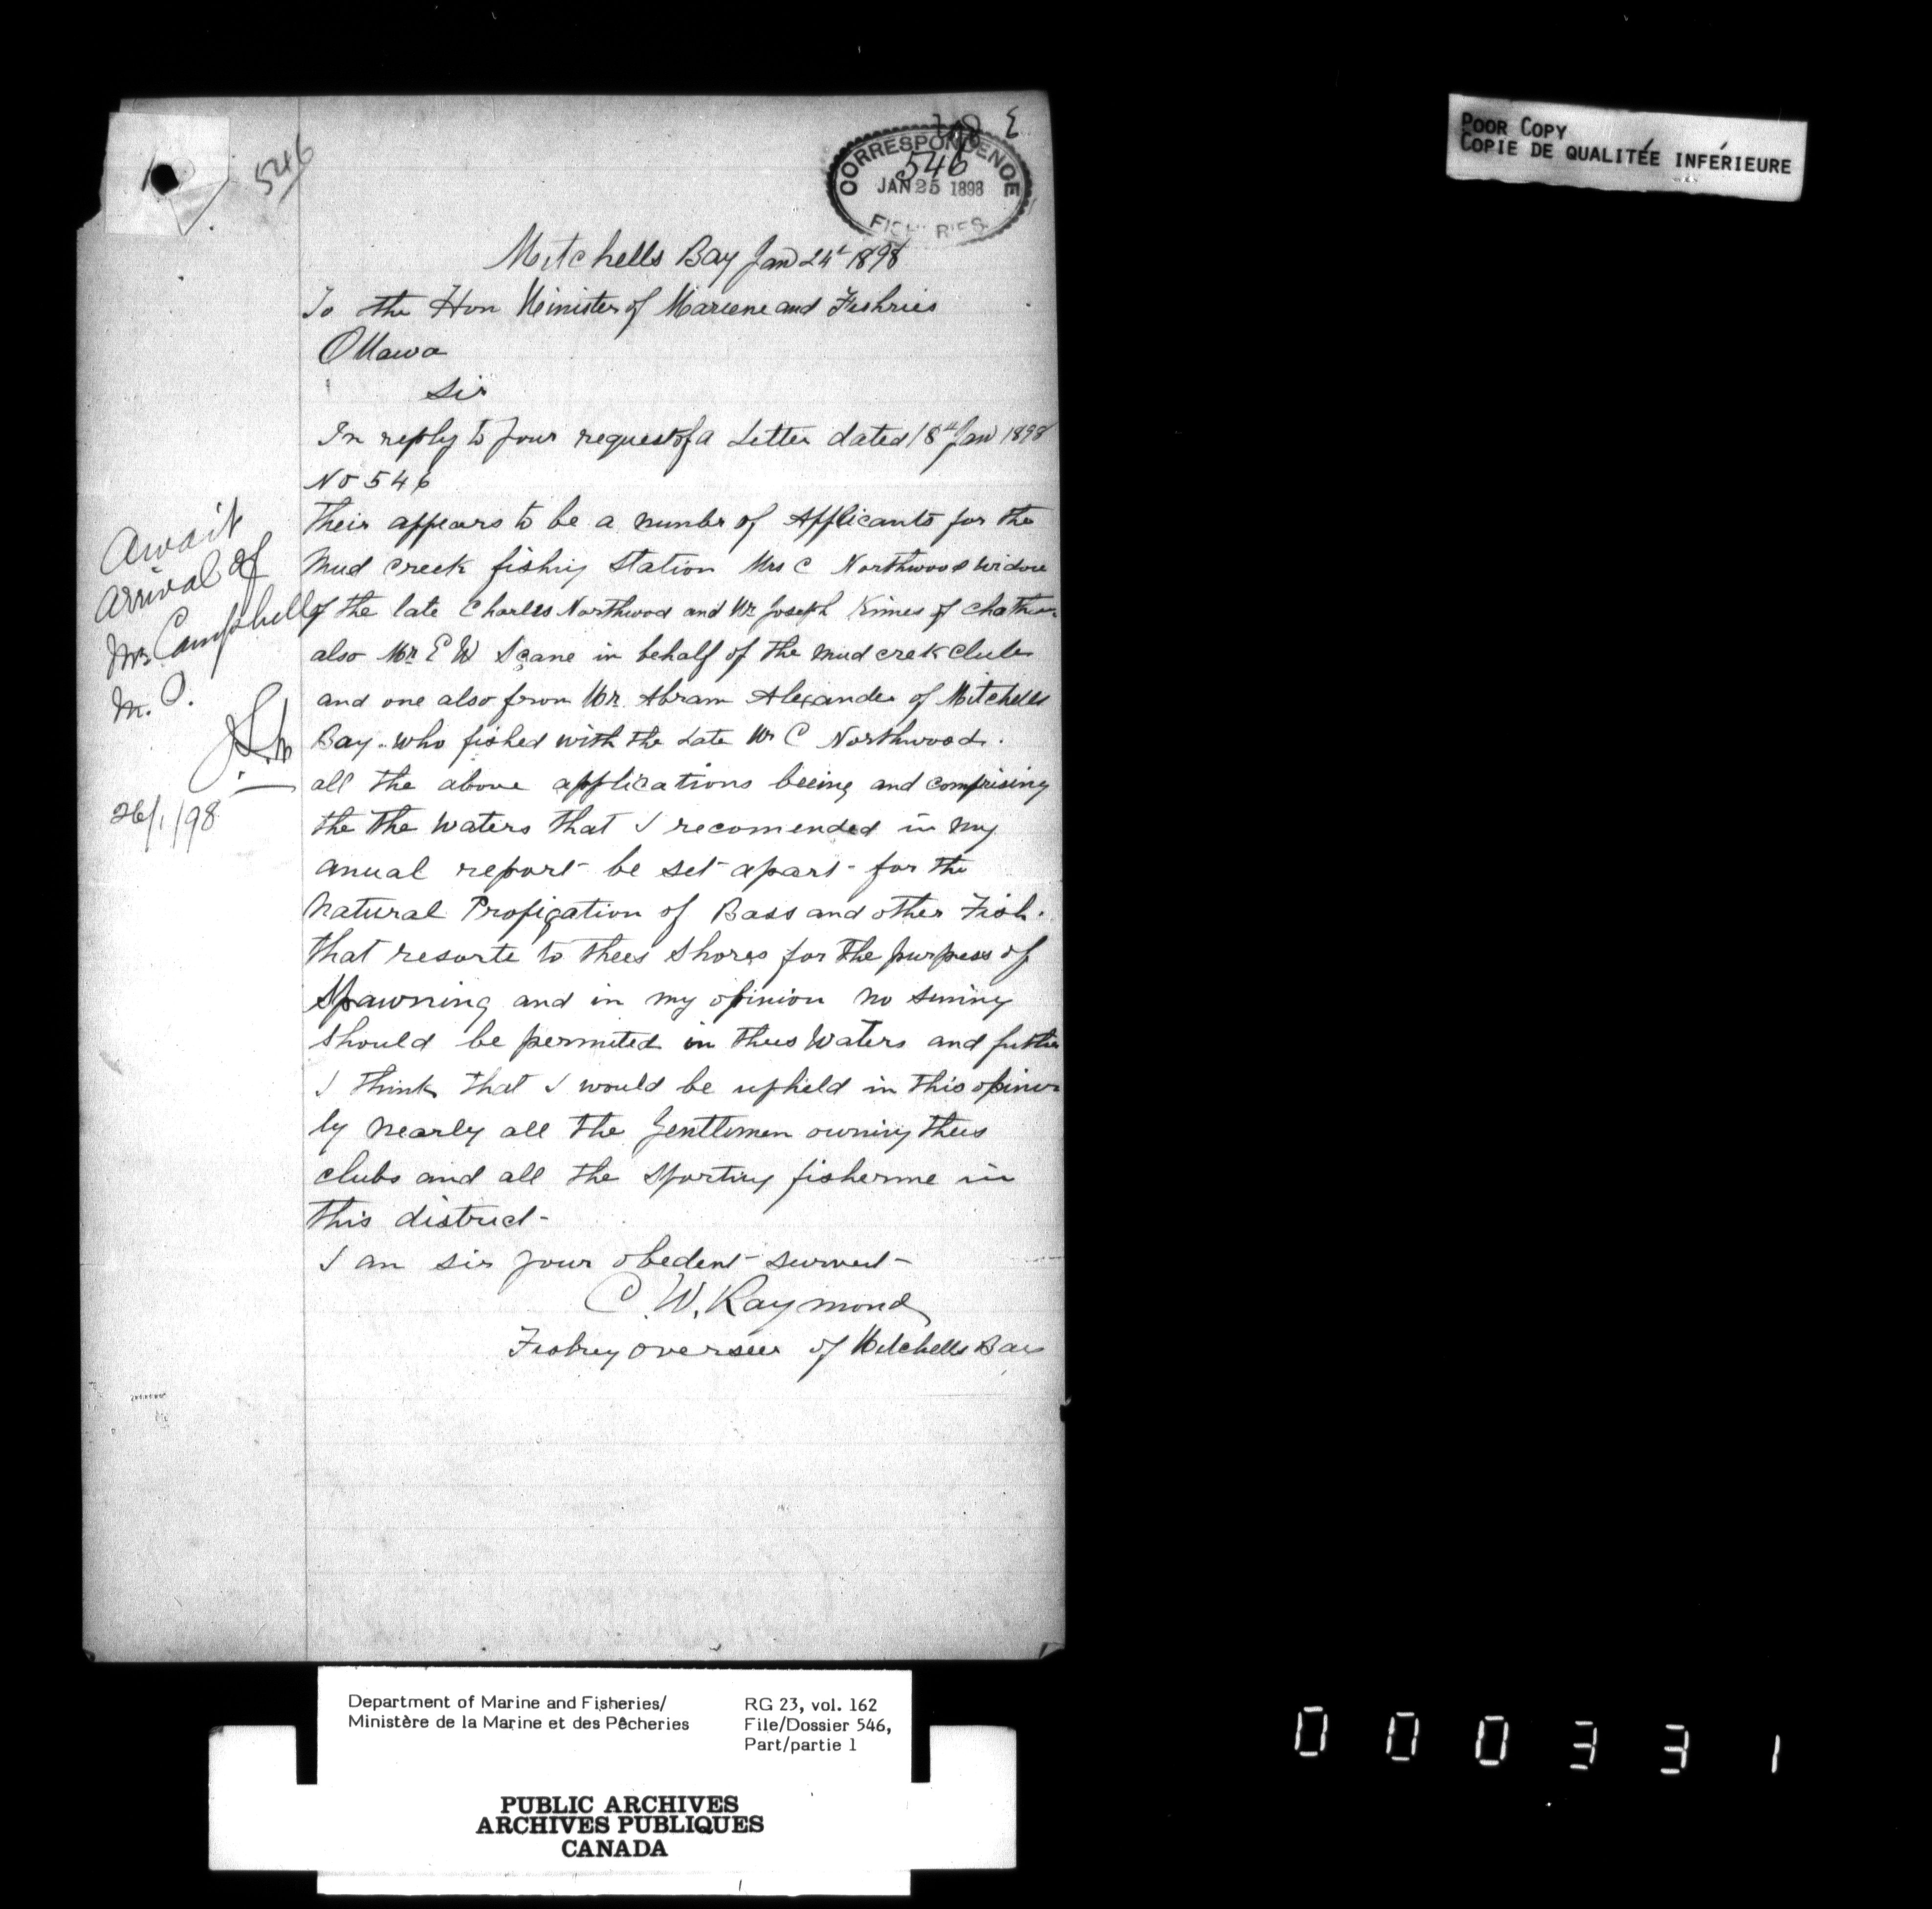 POOR COPY
COPIE DE QUALITÉE INFÉRIEURE
546
CORRESPONDENCE
546
JAN 25 1898
Mitchells Bay Jan 24th 1898
To the Hon Minister of Mareene and Fishries
Ottawa
Sir
In reply to your request of a Letter dated 18th Jan 1898
No 546
Their appears to be a number of Applicants for the
Mud Creek fishing Station Mrs C Northwood Widow
of the late Charles Northwood and Mr Joseph Kimes of Chatham
also Mr E W Scane in behalf of the mud crek Club
and one also from Mr. Abram Alexander of Mitchells
Bay. who fished with the Late Mr C Northwood.
all the above applications beeing and comprising
the the Waters that I recomended in my
anual report be set apart for the
Natural Propigation of Bass and other Fish.
that resorte to thees Shores for the purpess of
Spawning and in my opinion no sening
should be permited in thees Waters and futher
I think that I would be upheld in this opinion
by nearly all the Gentlemen owning thees
clubs and all the Sporting fisherme in
this district
I am sir your obedent servent
C. W. Raymond
Fishry overseer of Mitchells Bay
Await
arrival of
Mr. Campbell
M. P.
26/1/98
Department of Marine and Fisheries/
Ministère de la Marine et des Pêcheries
RG 23, vol. 162
File/Dossier 546,
Part/partie 1
PUBLIC ARCHIVES
ARCHIVES PUBLIQUES
CANADA
000331